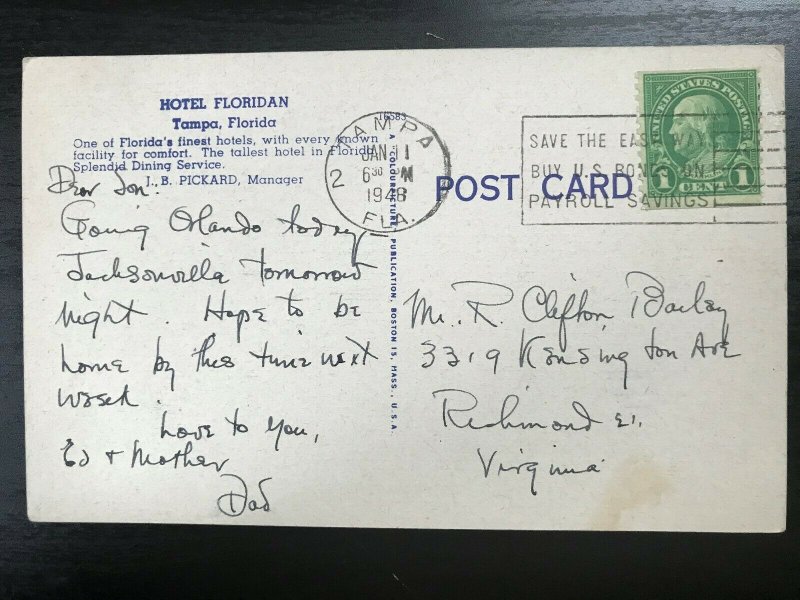 HOTEL FLORIDAN
Tampa, Florida
One of Florida's finest hotels, with every known
facility for comfort. The tallest hotel in Florida.
Splendid Dining Service.
J. B. PICKARD, Manager
Dear Son:
Going Orlando today—
Jacksonville tomorrow
night. Hope to be
home by this time next
week.
Love to you,
Ed + Mother
Dad
16583
A COLOURPICTURE PUBLICATION, BOSTON 15, MASS., U.S.A.
TAMPA
2
JAN 11
6 30 M
1948
FLA.
POST CARD
SAVE THE EASY WAY
BUY U.S. BONDS ON
PAYROLL SAVINGS
UNITED STATES POSTAGE
1 CENT 1
Mr. R. Clifton Bailey
3319 Kensington Ave
Richmond 21,
Virginia